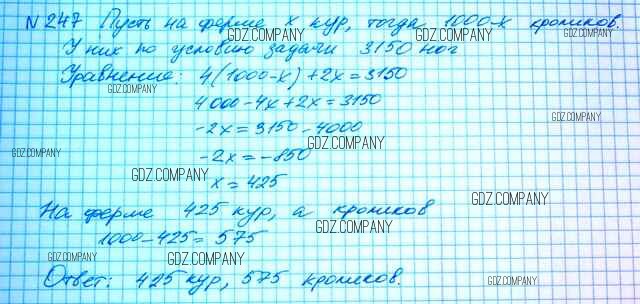 N 247 Пусть на ферме x кур, тогда 1000-x кроликов.
У них по условию задачи 3150 ног
Уравнение: 4(1000-x)+2x=3150
4000-4x+2x=3150
-2x=3150-4000
-2x=-850
x=425
На ферме 425 кур, а кроликов
1000-425=575
Ответ: 425 кур, 575 кроликов.
GDZ.COMPANY
GDZ.COMPANY
GDZ.COMPANY
GDZ.COMPANY
GDZ.COMPANY
GDZ.COMPANY
GDZ.COMPANY
GDZ.COMPANY
GDZ.COMPANY
GDZ.COMPANY
GDZ.COMPANY
GDZ.COMPANY
GDZ.COMPANY
GDZ.COMPANY